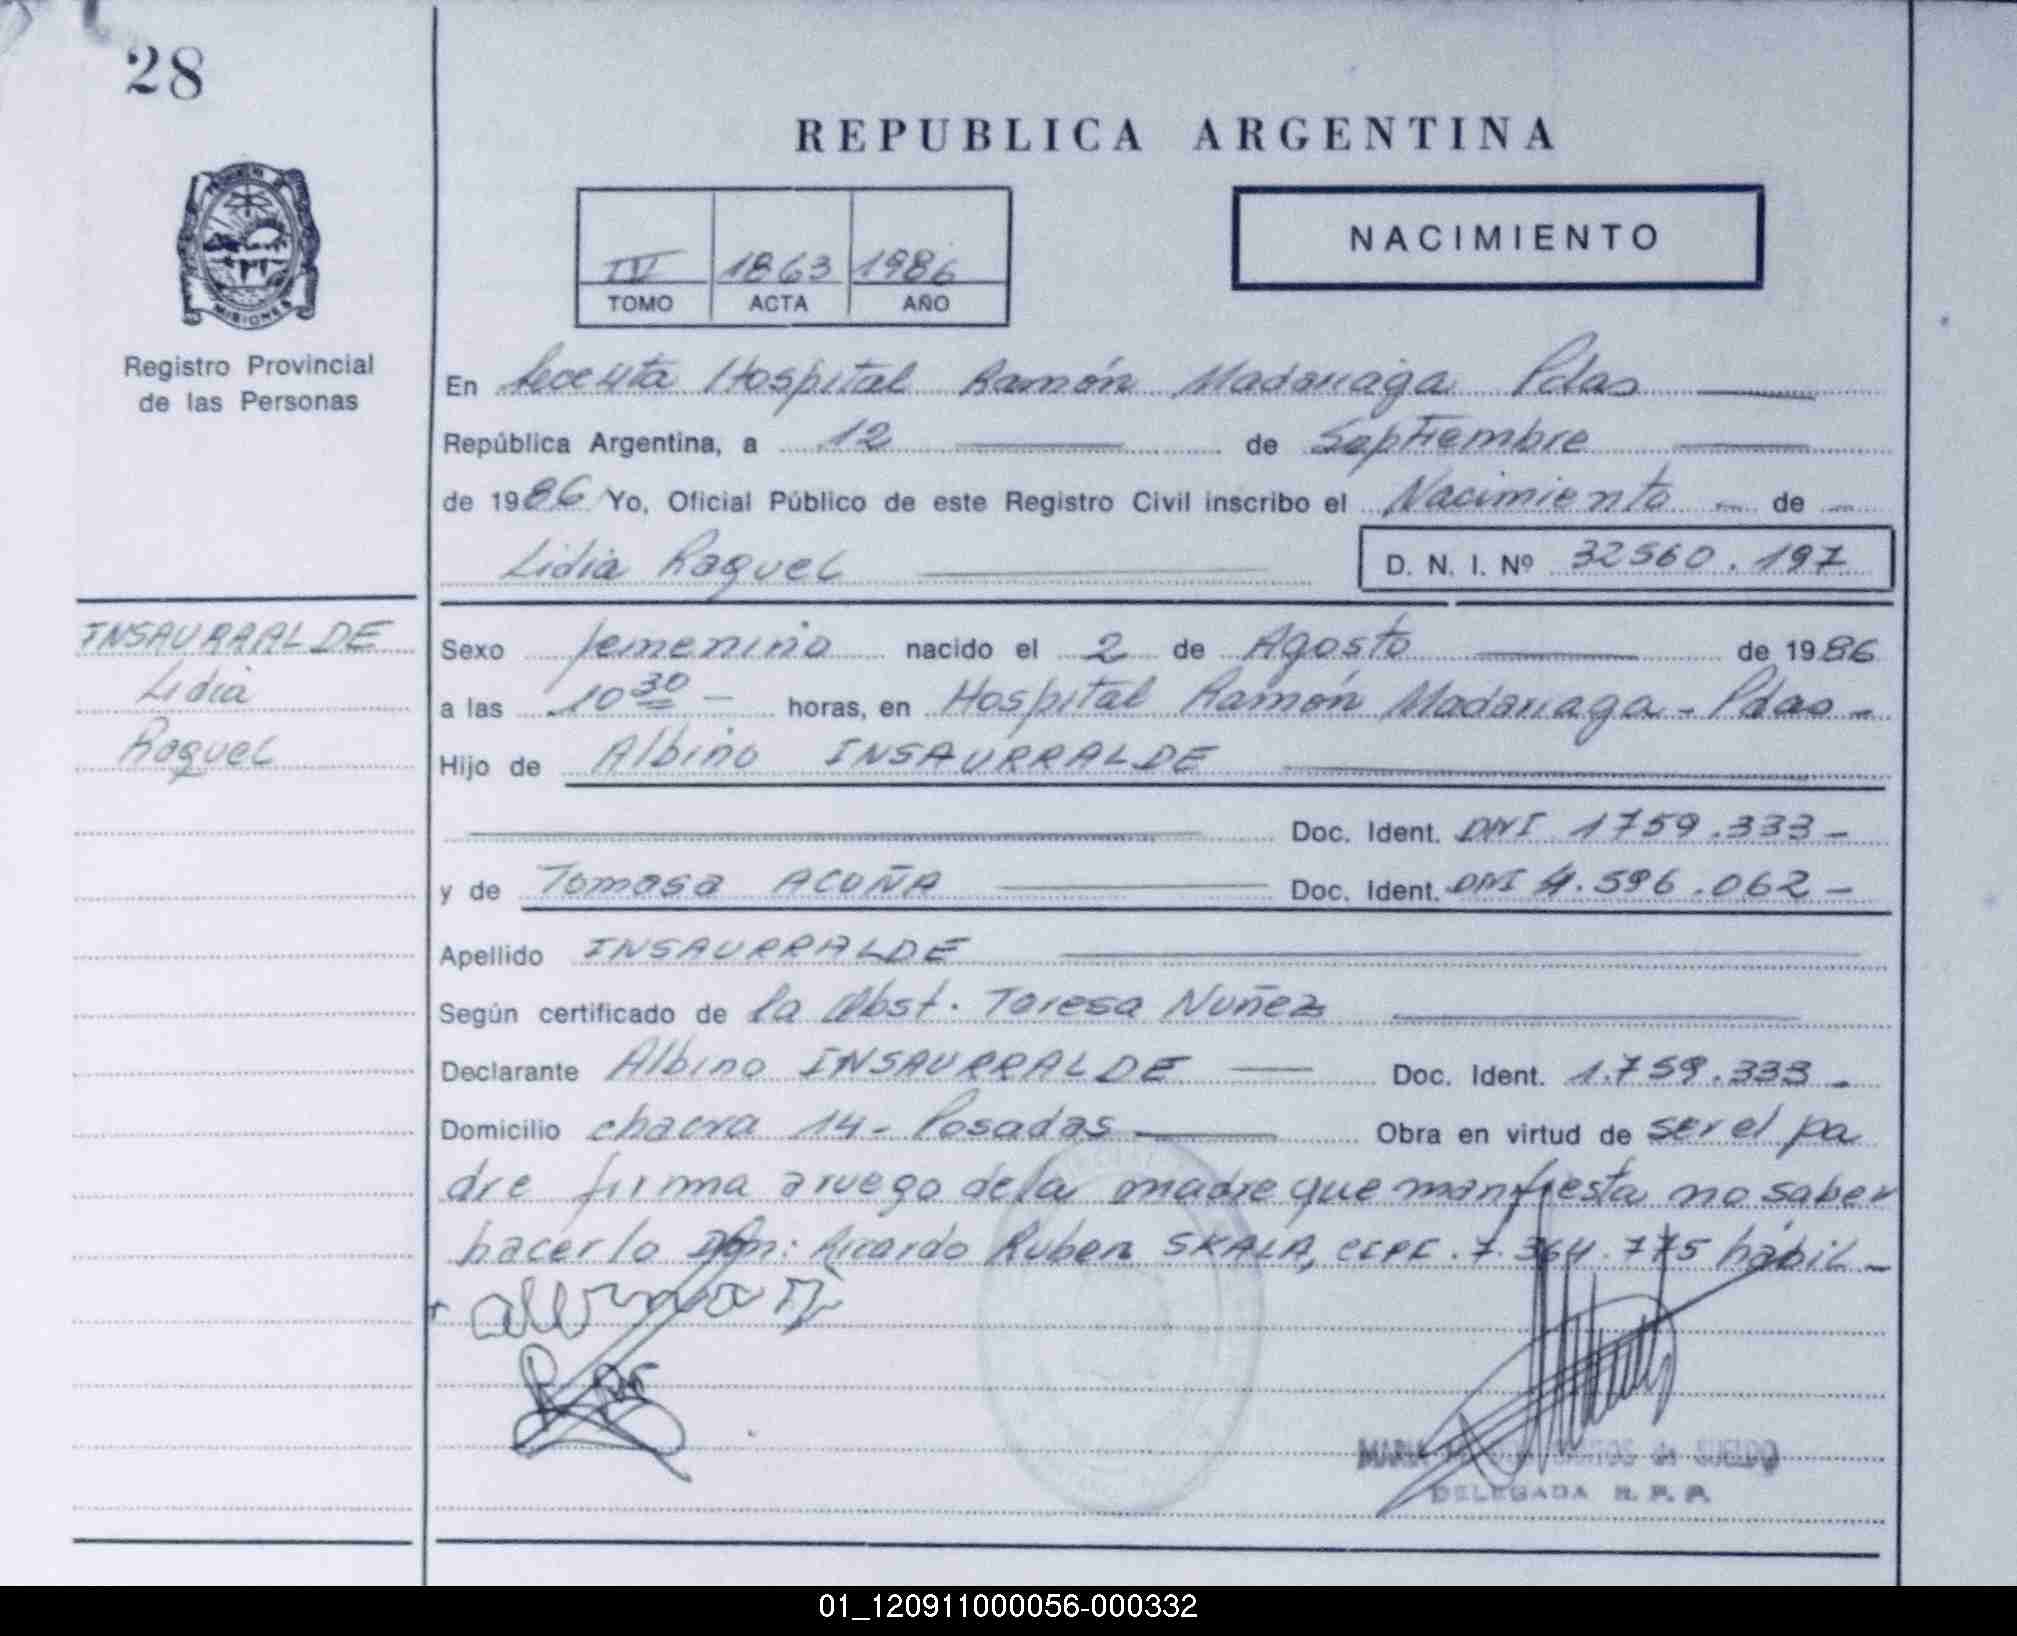 28
REPUBLICA ARGENTINA
IV 1863 1986
TOMO ACTA AÑO
NACIMIENTO
MISIONES
Registro Provincial
de las Personas
En Hospital Ramón Madariaga Pdas
República Argentina, a 12 de Septiembre
de 1986 Yo, Oficial Público de este Registro Civil inscribo el Nacimiento de
Lidia Raquel D. N. I. Nº 32560.197
INSAURRALDE
Lidia
Raquel
Sexo femenino nacido el 2 de Agosto de 1986
a las 10 30 - horas, en Hospital Ramón Madariaga - Pdas -
Hijo de Albino INSAURRALDE
Doc. Ident. DNI 1759.333 -
y de Tomasa ACUÑA Doc. Ident. DNI 4.596.062 -
Apellido INSAURRALDE
Según certificado de la Obst. Teresa Nuñez
Declarante Albino INSAURRALDE Doc. Ident. 1.759.333 -
Domicilio chacra 14 - Posadas Obra en virtud de ser el pa
dre firma a ruego de la madre que manifiesta no saber
hacerlo Don: Ricardo Ruben SKALA, 7.364.775 hábil -
MARIA DELEGADA R. P. P.
01_120911000056-000332